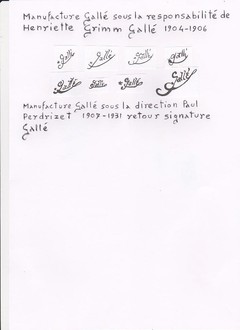 Manufacture Gallé sous la responsabilité de
Henriette Grimm Gallé 1904-1906
Gallé Gallé Gallé Gallé
Gallé Gallé Gallé Gallé
Manufacture Gallé sous la direction Paul
Perdrizet 1907-1931 retour signature
Gallé